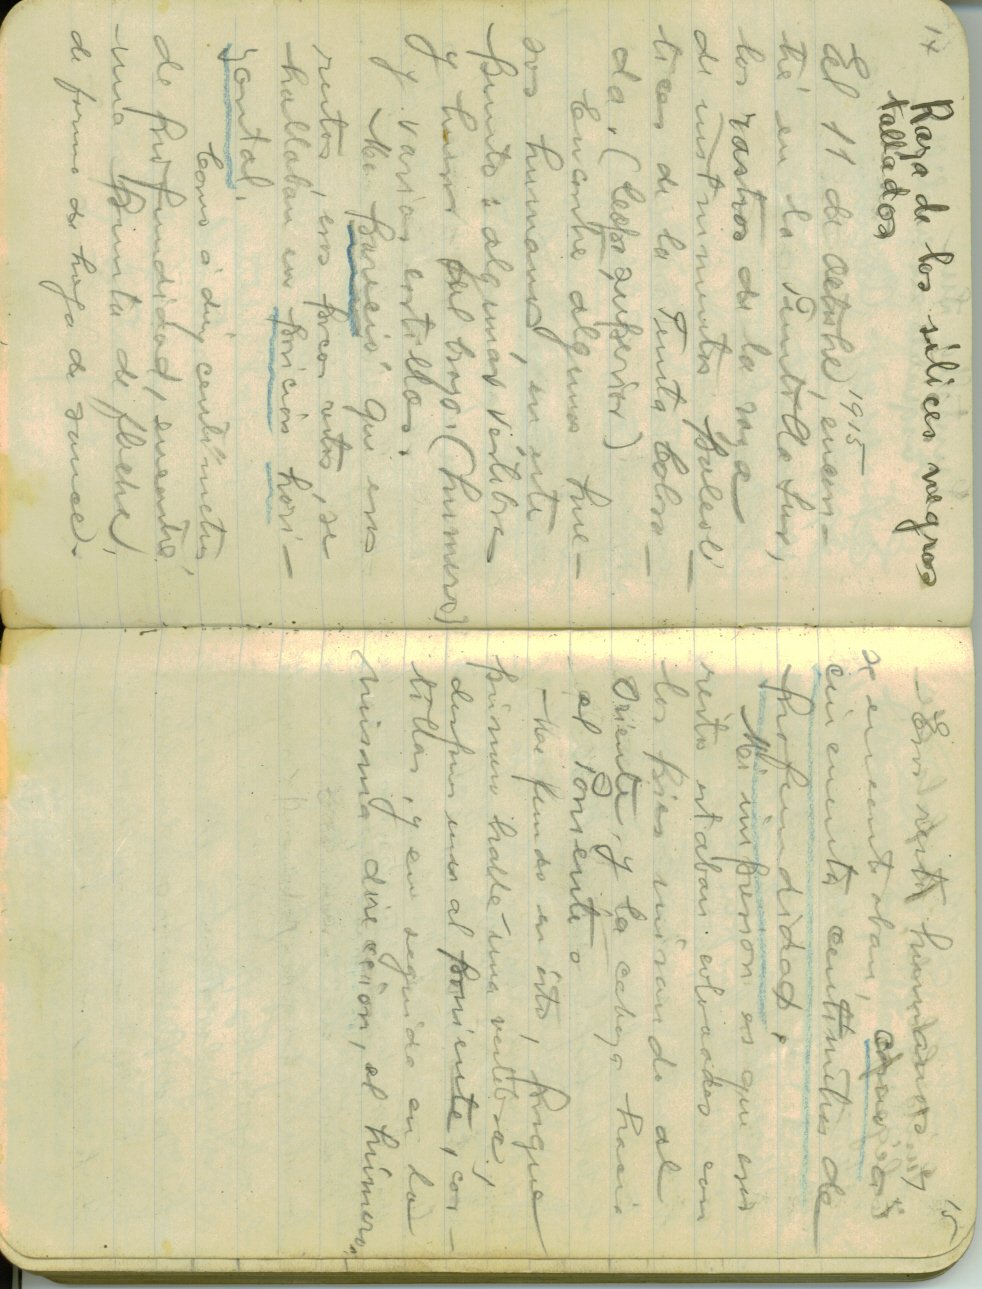 14
Raza de los sílices negros
tallados
El 11 de octubre, 1915 encon-
tré en la Puntilla Sur,
los rastros de la raza
de instrumentos paleolí-
ticos de la Punta Colora-
da. (Capa superior)
Encontré algunos hue-
sos humanos, en este
punto: algunas vértebras
y hueso del brazo. (húmero)
y varias costillas.
Me pareció que esos
restos, esos pocos restos, se
hallaban en posición hori-
zontal.
Como a diez centímetros
de profundidad, encontré
una punta de flecha,
de forma de hoja de sauce.
15
- Esos restos humanos
se encontraban, como a
cincuenta centímetros de
profundidad.
Mi impresion es que esos
restos estaban colocados con
los pies mirando al
Oriente, y la cabeza hacia
el Poniente.
Me fundo en ésto, porque
primero hallé una vértebra,
despues mas al poniente, cos-
tillas, y en seguida en la
misma direccion, el húmero.